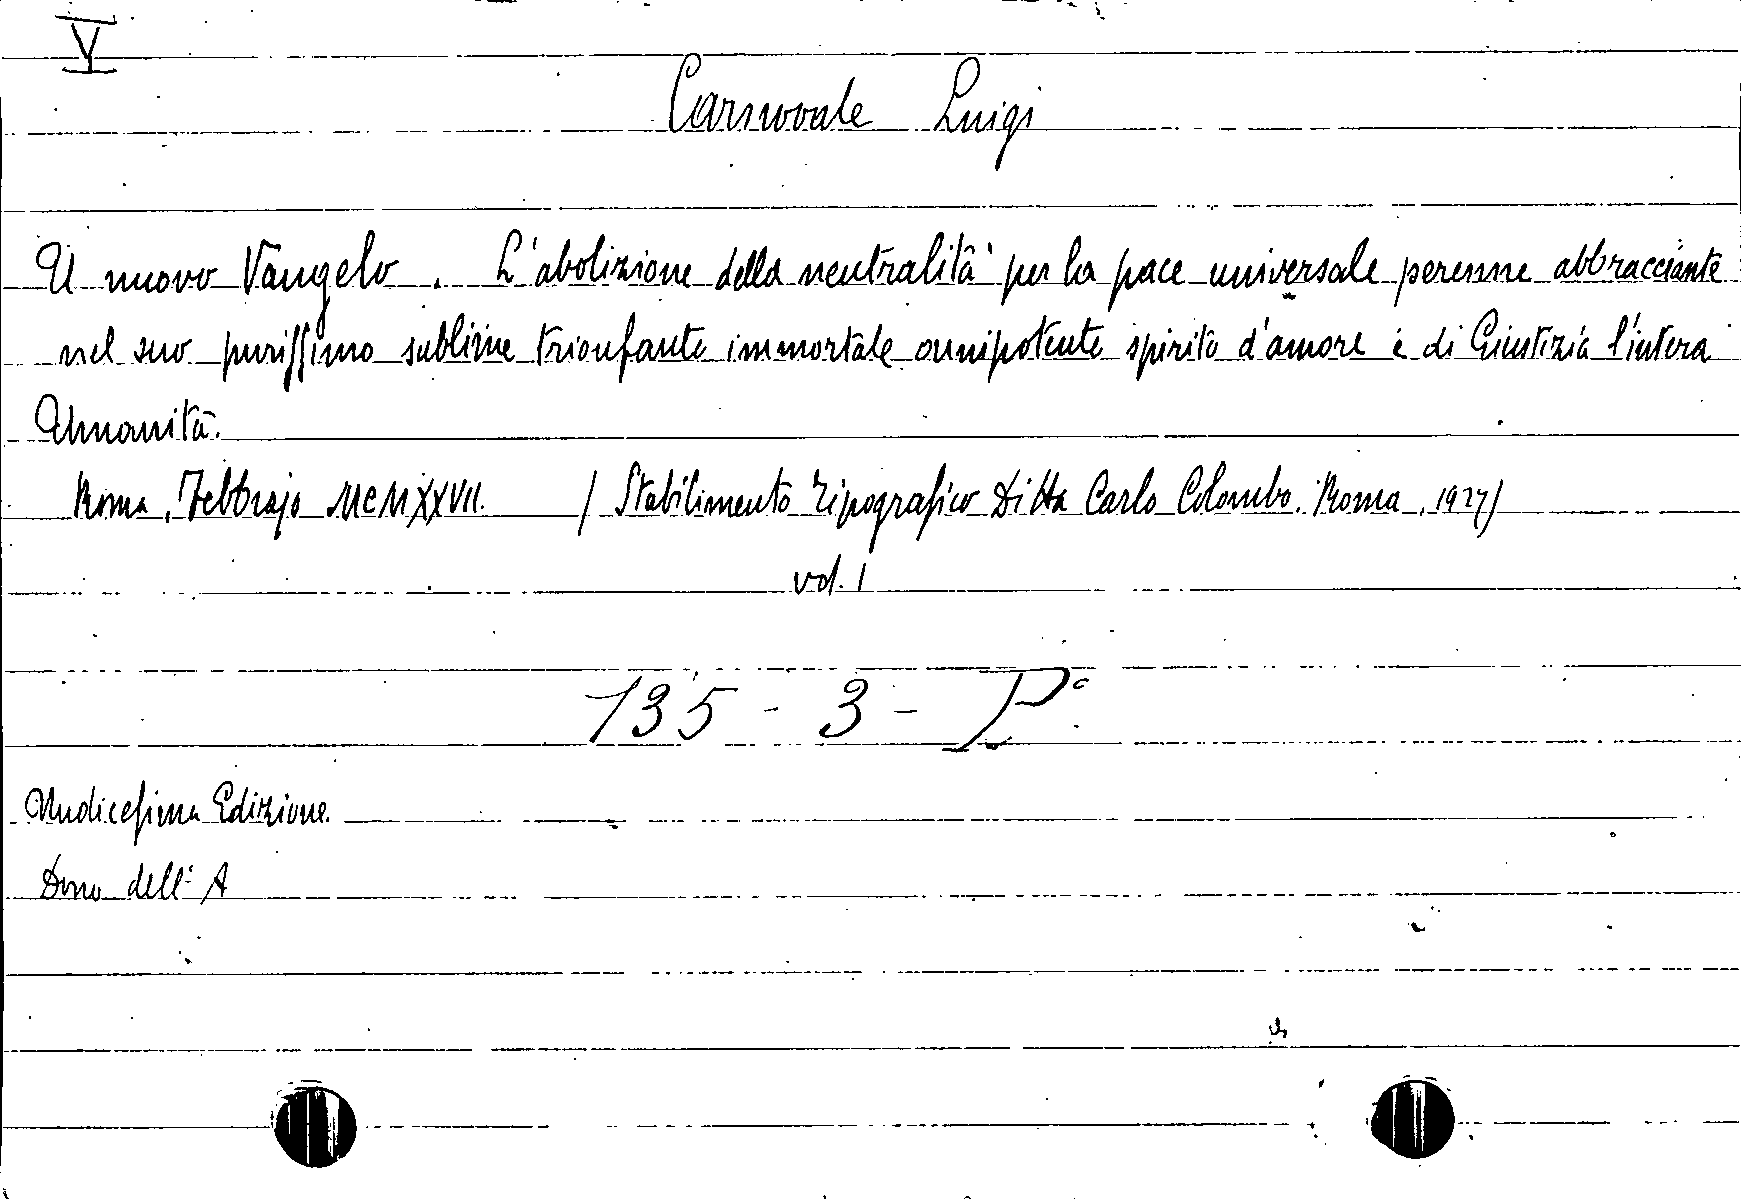 V
Carnovale Luigi
Il nuovo Vangelo. L'abolizione della neutralità per la pace universale perenne abbracciante
nel suo purissimo sublime trionfante immortale onnipotente spirito d'amore e di Giustizia l'intera
Umanità.
Roma, Febbrajo MCMXXVII. / Stabilimento Tipografico Ditta Carlo Colombo. Roma, 1927/
vol. 1
135 - 3 - P.
Undicesima Edizione.
Dono dell'A